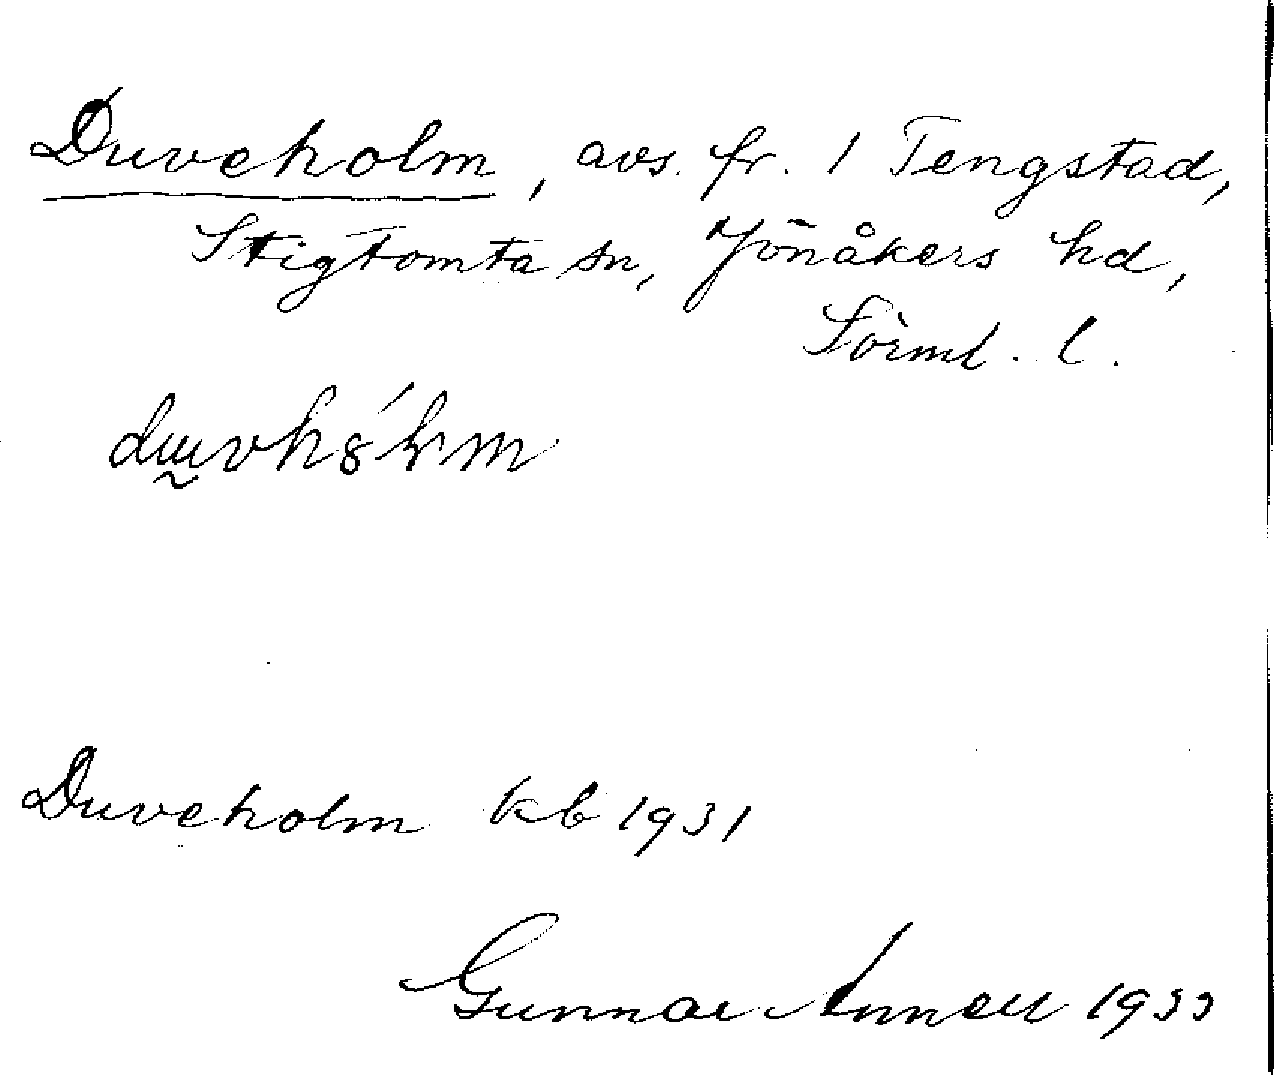 Duveholm, avs. fr. 1 Tengstad,
Stigtomta sn, Jönåkers hd,
Sörml. l.
Duveholm kb 1931
Gunnar Annell 1933